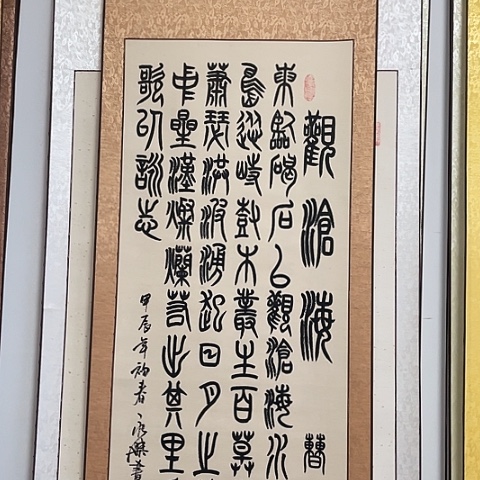 觀滄海 曹
東臨碣石以觀滄海水
島竦峙樹木叢生百草
蕭瑟洪波湧起日月之
中星漢燦爛若出其里
歌以詠志
甲辰年初春
書